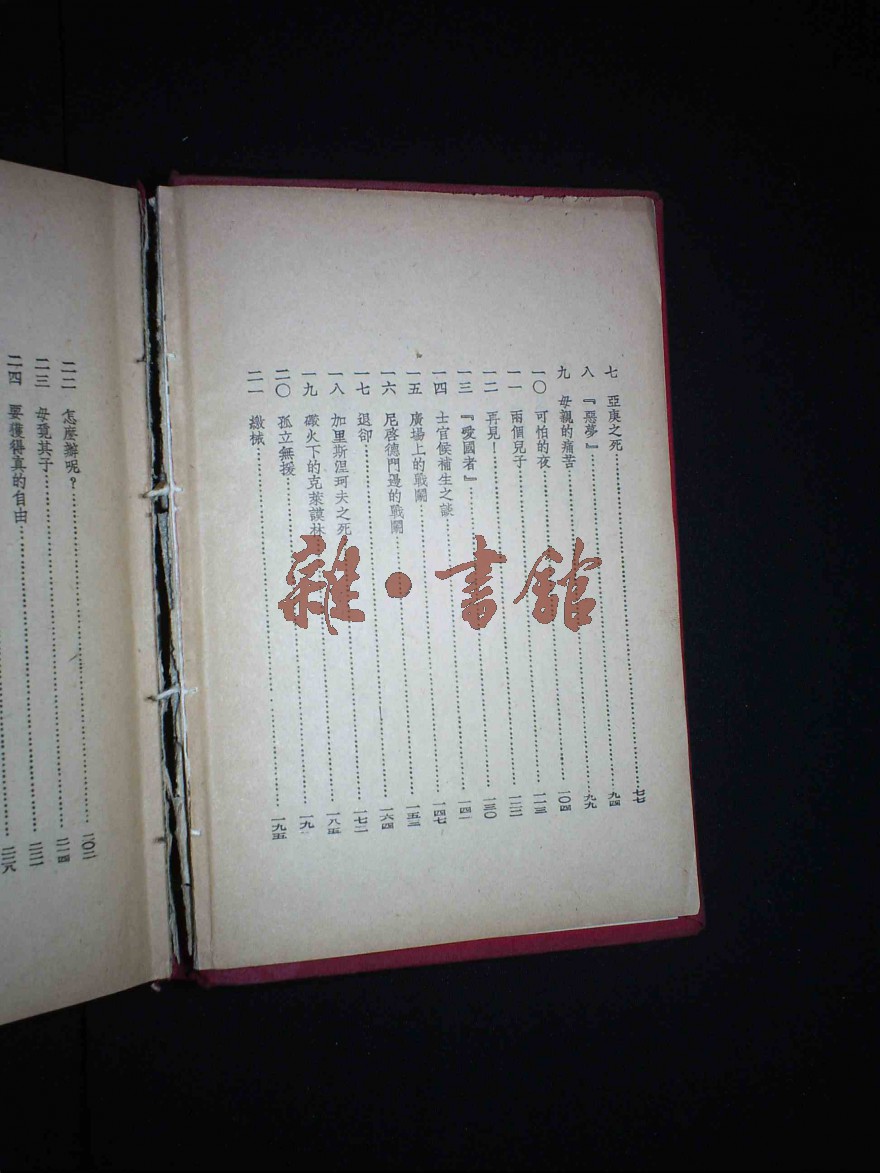 七　亞庚之死……七七
八　『惡夢』……九四
九　母親的痛苦……九九
一〇　可怕的夜……一〇四
一一　兩個兒子……一一三
一二　再見！……一二二
一三　『愛國者』……一三〇
一四　士官候補生之談……一四一
一五　廣場上的戰鬭……一四七
一六　尼啓德門邊的戰鬭……一五三
一七　退卻……一六四
一八　加里斯涅珂夫之死……一七二
一九　礮火下的克萊謨林……一八五
二〇　孤立無援……一九一
二一　繳械……一九五
二二　怎麼辦呢？……二〇二
二三　母覓其子……二一四
二四　要獲得真的自由……二二二
雜·書館